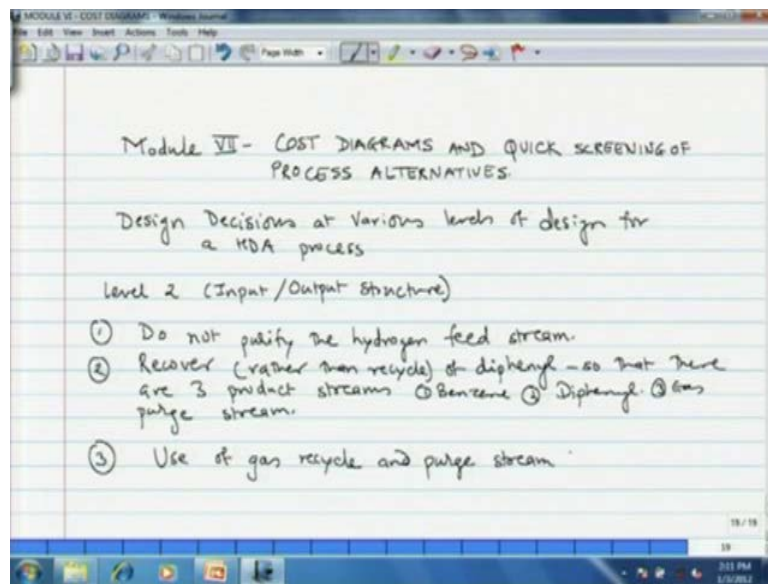 MODULE VI - COST DIAGRAMS - Windows Journal
File Edit View Insert Actions Tools Help
Page Width
Module VII - COST DIAGRAMS AND QUICK SCREENING OF
PROCESS ALTERNATIVES.
Design Decisions at various levels of design for
a HDA process
Level 2 (Input/Output Structure)
① Do not purify the hydrogen feed stream.
② Recover (rather than recycle) of diphenyl - so that there
are 3 product streams ① Benzene ② Diphenyl. ③ Gas
purge stream.
③ Use of gas recycle and purge stream
19/19
19
2:11 PM
1/3/2012